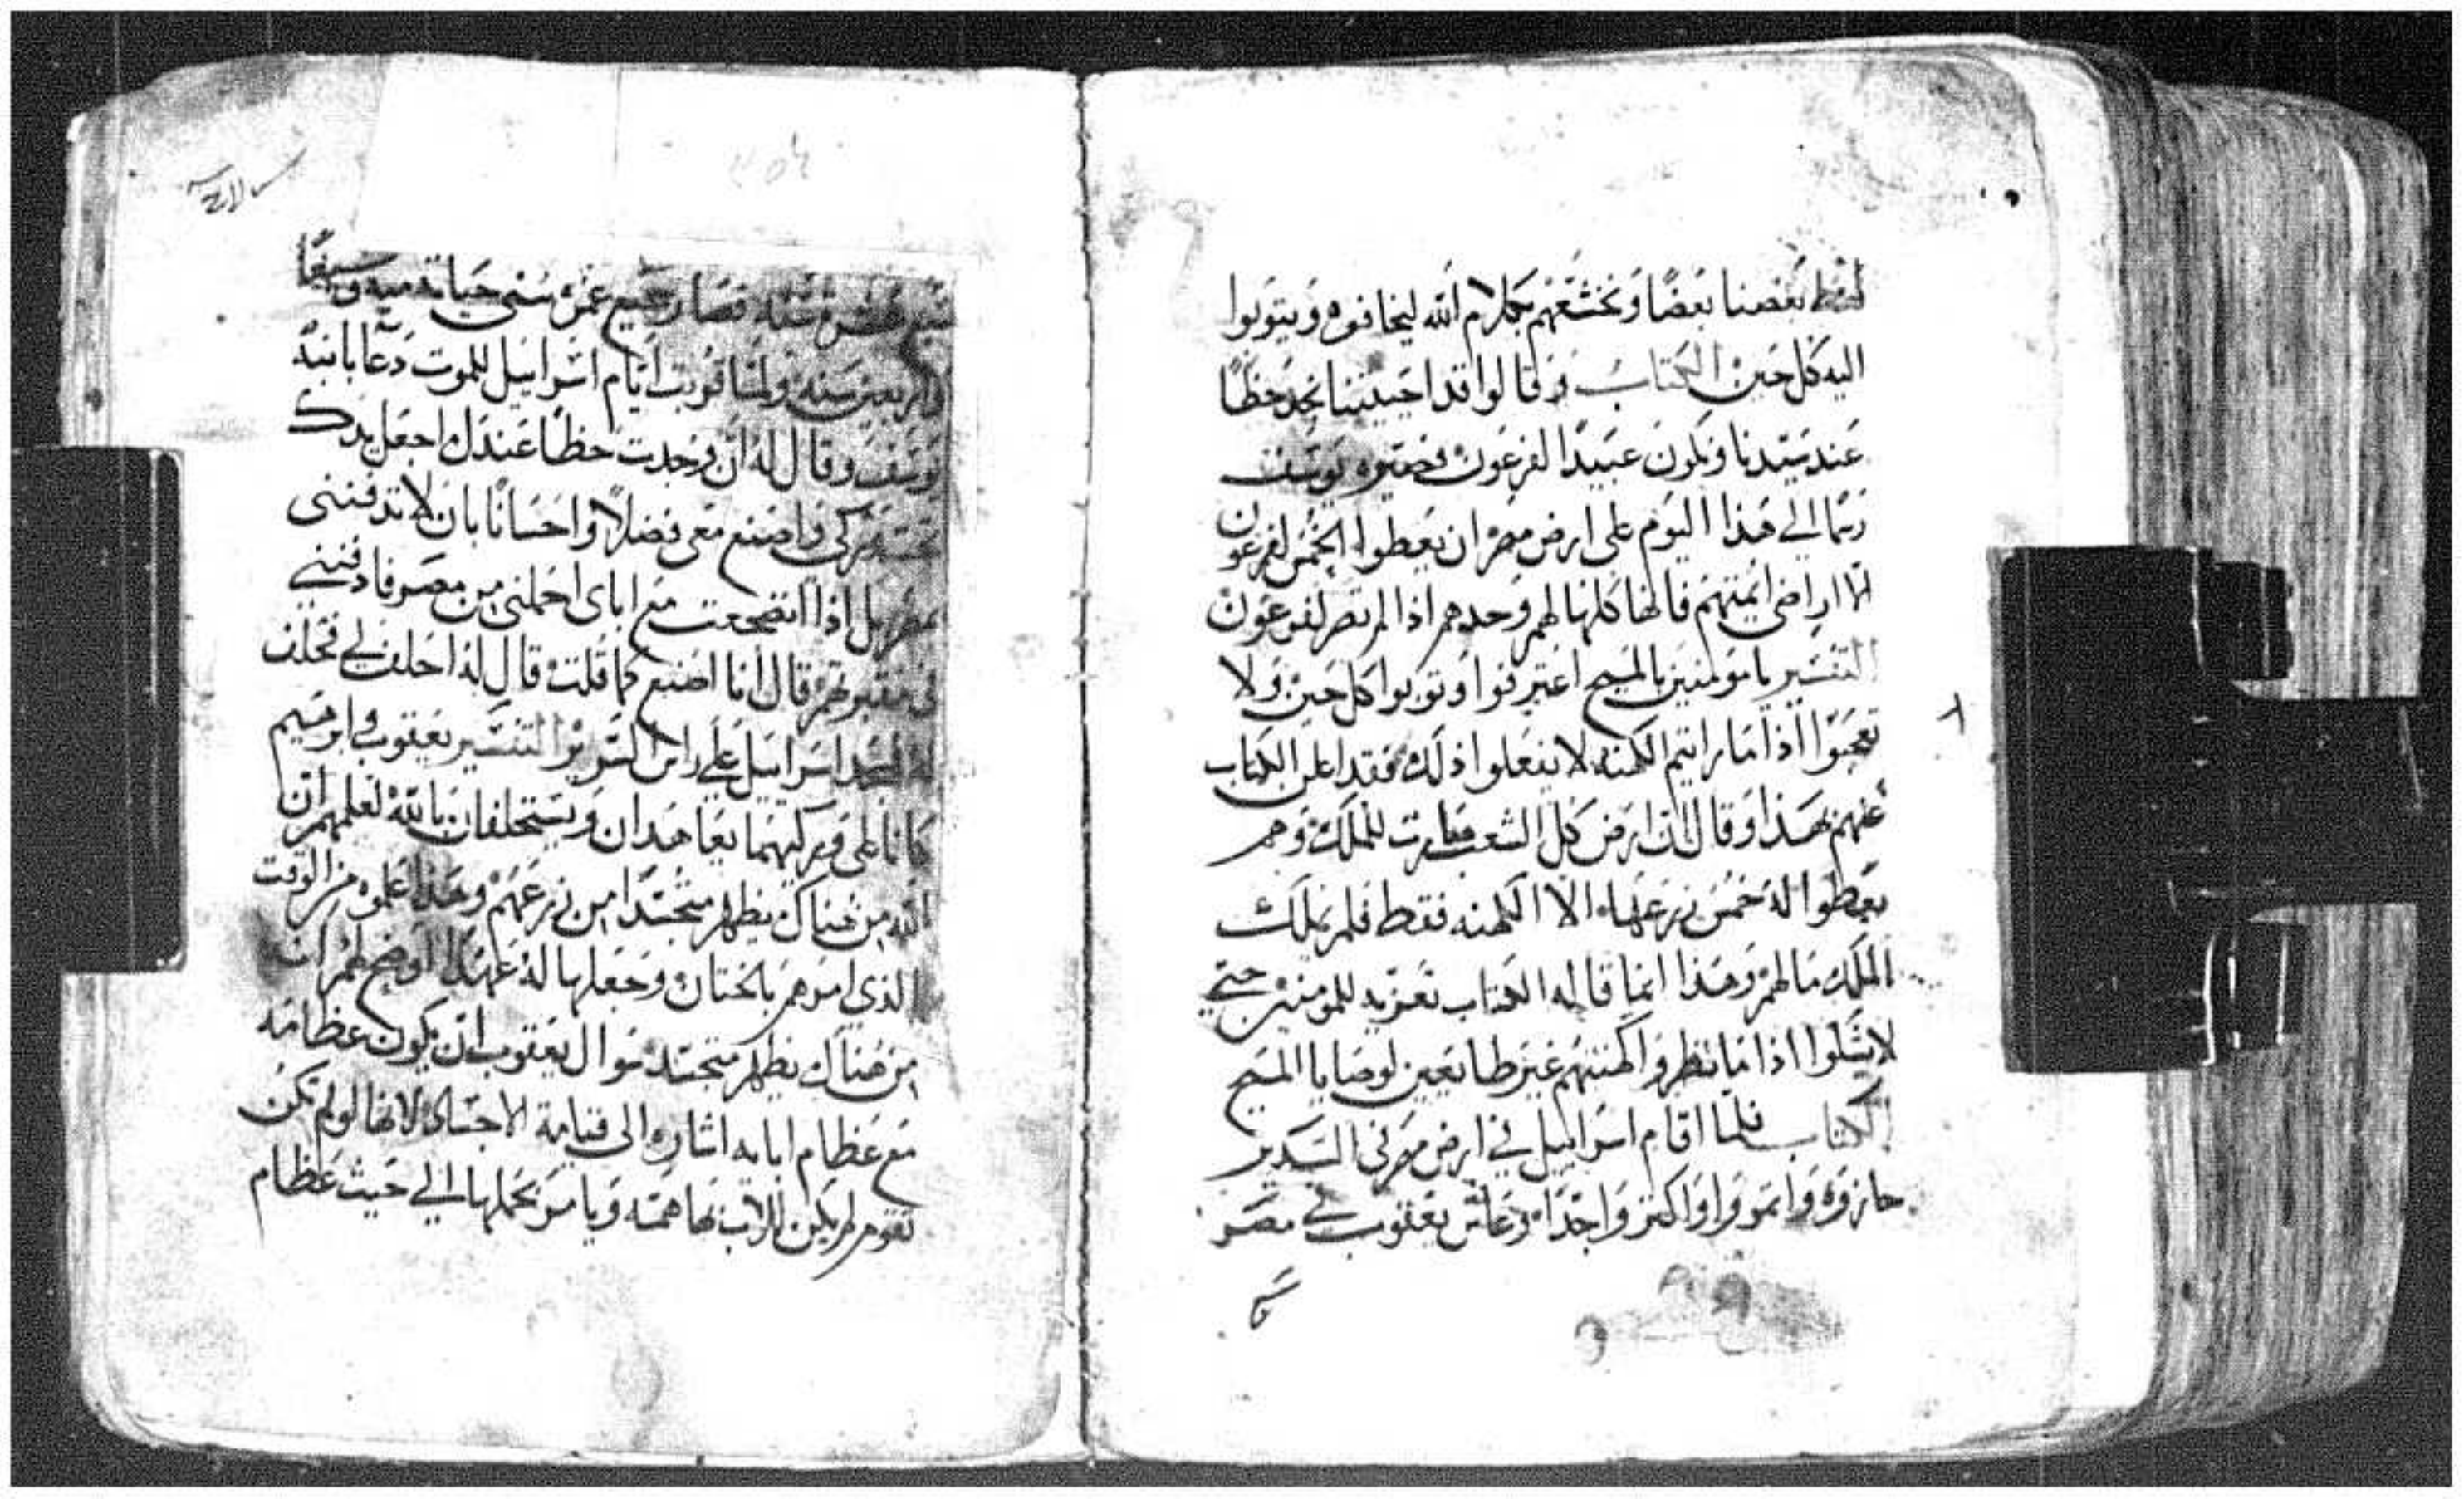 بعضنا بعضًا وَنخشعَهم بكلام الله ليخافوه وَيتوبوا
اليه كل حين الكتابُ وَقالوا قد احييتنا نجد حظًا
عند سَيّدنا ونكون عَبيدًا لفرعَون فصيّره يوسف
رسما الي هَذا اليَوم على ارض مصر ان يعطوا الخمُس لفرعون
الا اراضى ايمتهم فانها كلها لهم وحدهم اذا لم تصر لفرعَون
التفسير يا مومنين بالمسيح اعترفوا وتوبوا كل حين وَلا
تعجبَوا اذا مَا رايتم الكهنه لا يفعلوا ذلك فقد اعلن الكتاب
عنهم بهَذا وَقال ان ارض كل الشعب صَارت للملك وَهم
يعطوا لهُ خمُس زرعَها الا الكهنه فقط فلم يملك
الملك مالهم وَهذا انما قاله الكتاب تعزيه للمومنين حتي
لا يشكوا اذا مَا نظروا كهنتهم غير طايعين لوصايا المسيح
الكتاب فلما اقام اسراييل في ارض مصر في السَدير
حازوه وَانموا وَاكثروا جدًا وَعاش يعقوب في مصر
سبع عشرة سنه فصار جميع عمره سنى حياته ميه وسبعًا
واربعين سَنه ولما قربت ايام اسراييل للموت دَعا بابنهُ
يوسَف وقال لهُ ان وجدت حظًا عندك اجعل يدك
تحت وركى واصنع معى فضلاً واحسَانًا بان لا تدفننى
بمصر بل اذا انضجعت مع اباى احملنى من مصر فادفننى
فى مقبرتهم قال انا اصنع كما قلت قال لهُ احلف لي فحلف
لهُ فسجد اسراييل على راس السَرير التفسير يعقوب وابرهيم
كانا على وركيهما يعاهدان وَيستحلفان بالله لعلمهم ان
الله من هناك يظهر متجسدًا من زرعَهم وهَذا علموه من الوقت
الذي امرهم بالختان وجعلها لهُ عَهدًا اوضح لهم ان
من هناك يظهر متجسد سَوال يعقوب ان يكون عظامه
مع عظام ابايه اشاره الى قيامة الاجسَاد لانها لو لم تكن
تقوم لم يكن للاب بها همّه وَيامر بحملها الي حَيث عَظام